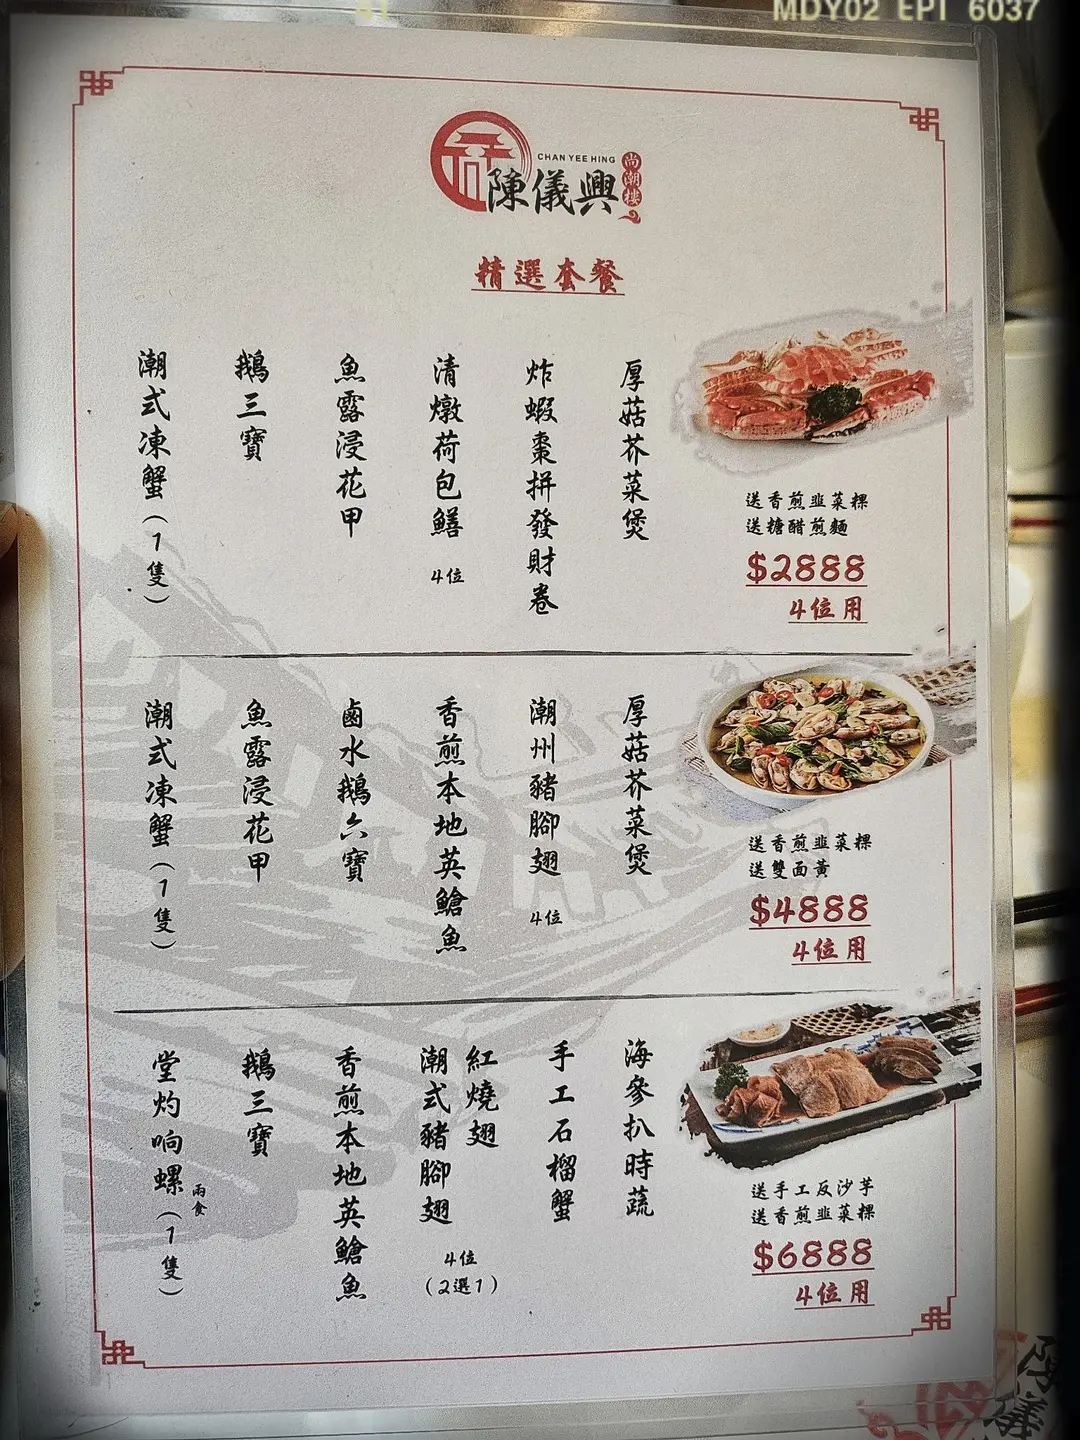 MDY02 EPI 6037
CHAN YEE HING
陳儀興
尚潮樓
精選套餐
潮式凍蟹（1隻）
鵝三寶
魚露浸花甲
清燉荷包鱔 4位
炸蝦棗拼發財卷
厚菇芥菜煲
送香煎韭菜粿
送糖醋煎麵
$2888
4位用
潮式凍蟹（1隻）
魚露浸花甲
鹵水鵝六寶
香煎本地英鱠魚
潮州豬腳翅 4位
厚菇芥菜煲
送香煎韭菜粿
送雙面黃
$4888
4位用
堂灼响螺 兩食（1隻）
鵝三寶
香煎本地英鱠魚
潮式豬腳翅
紅燒翅
4位
（2選1）
手工石榴蟹
海參扒時蔬
送手工反沙芋
送香煎韭菜粿
$6888
4位用